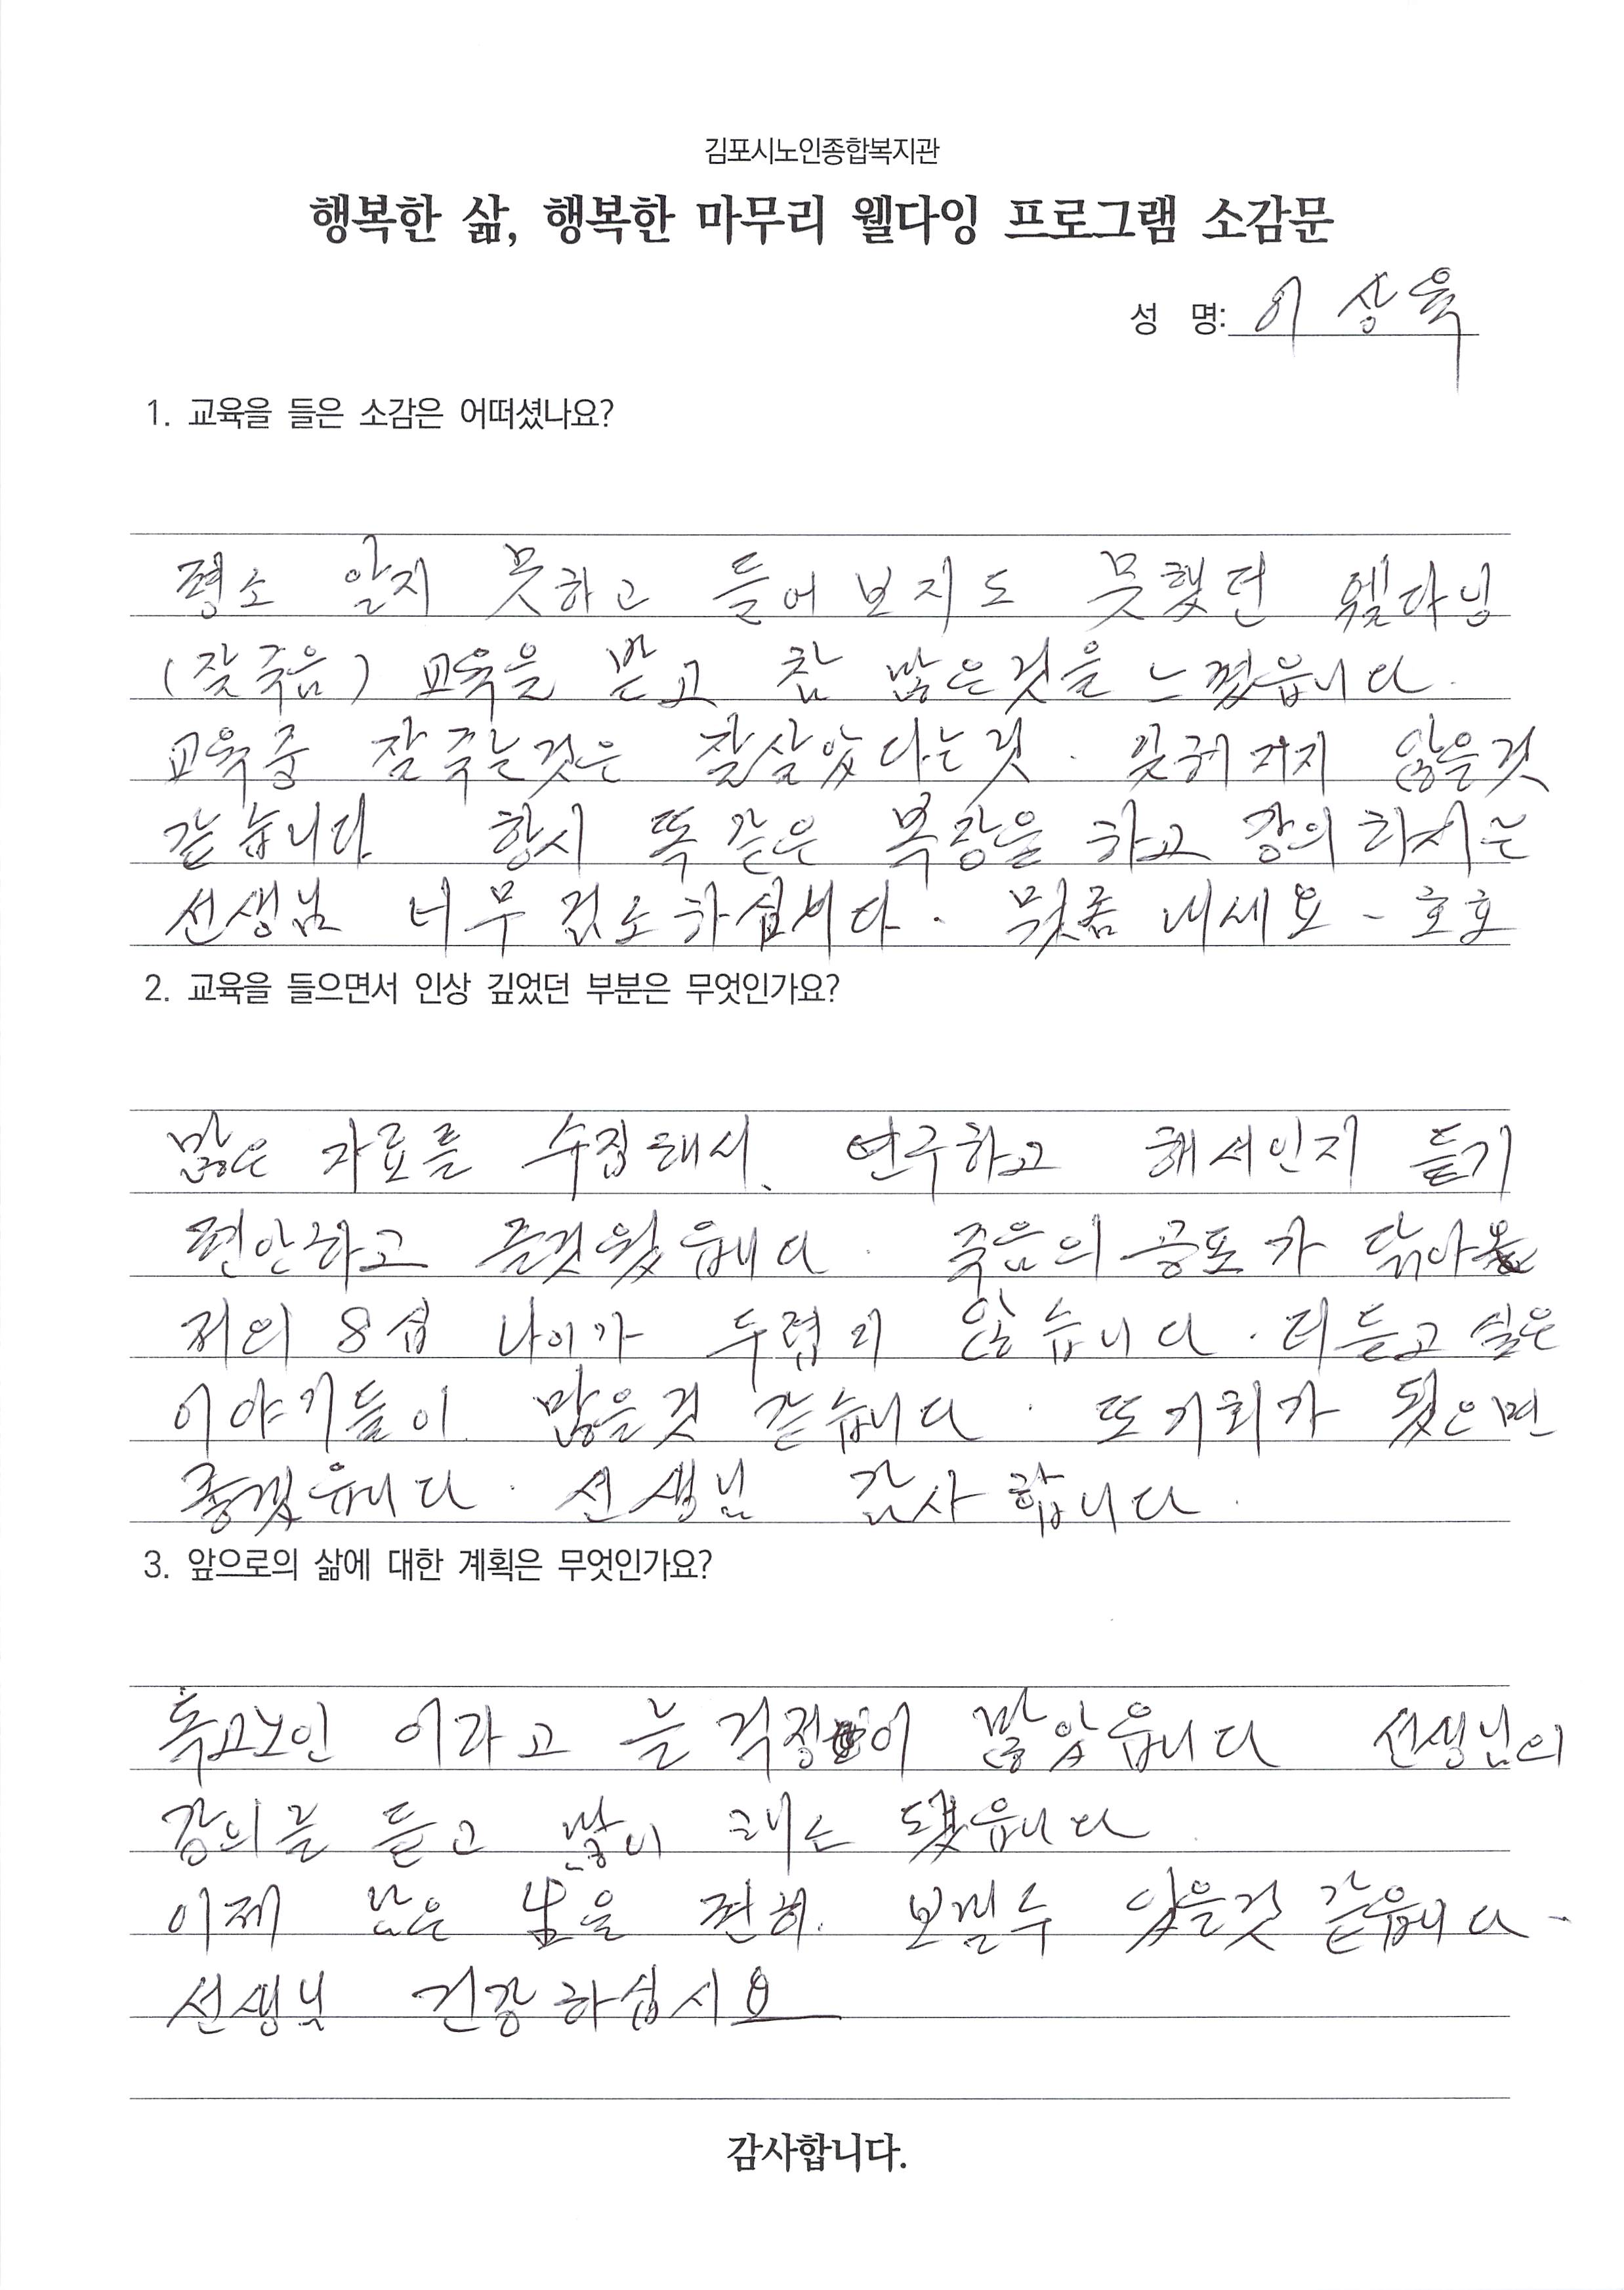 김포시노인종합복지관
행복한 삶, 행복한 마무리 웰다잉 프로그램 소감문
성 명: 이상욱
1. 교육을 들은 소감은 어떠셨나요?
평소 알지 못하고 들어 보지도 못했던 웰다닝
(잘죽음) 교육을 받고 참 많은것을 느꼈읍니다.
교육중 잘 죽는것은 잘살았다는것. 잊혀 지지 않을것
같습니다 항시 똑 같은 복장을 하고 강의 하시는
선생님 너무 검소하십니다. 뭣좀 내세요 - 호호
2. 교육을 들으면서 인상 깊었던 부분은 무엇인가요?
많은 자료를 수집해서, 연구하고 해서인지 듣기
편안하고 즐것웠읍니다. 죽음의 공포가
저의 8섭 나이가 두렵지 않습니다. 더듣고 싶은
이야기들이 많을것 같습니다. 또 기회가 됬으면
좋겠읍니다. 선생님 감사 합니다.
3. 앞으로의 삶에 대한 계획은 무엇인가요?
독고노인 이라고 늘 걱정이 많았읍니다 선생님의
강의를 듣고 많이 해소 됐읍니다.
이제 남은 을 편히. 보낼수 있을것 같읍니다-
선생님 건강하십시요
감사합니다.